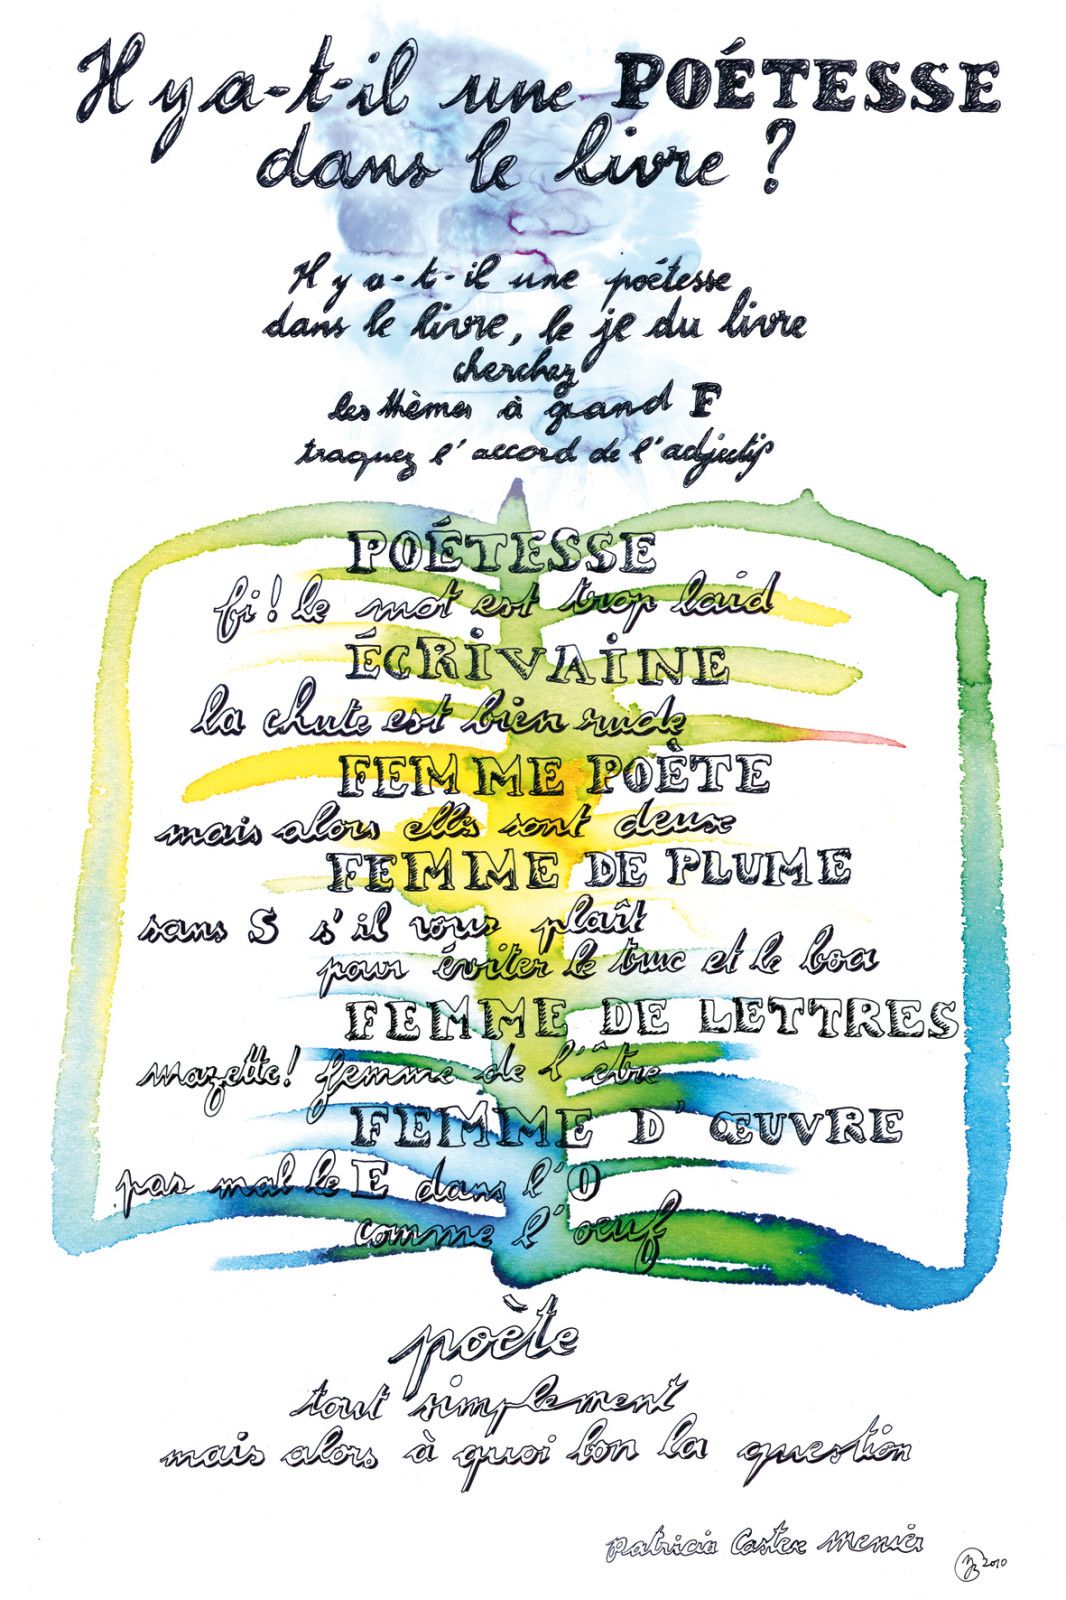 Il y a-t-il une POÉTESSE
dans le livre ?
Il y a-t-il une poétesse
dans le livre, le je du livre
cherchez
les thèmes à grand F
traquez l'accord de l'adjectif
POÉTESSE
fi ! le mot est trop laid
ÉCRIVAINE
la chute est bien rude
FEMME POÈTE
mais alors elles sont deux
FEMME DE PLUME
sans S s'il vous plaît
pour éviter le truc et le boa
FEMME DE LETTRES
mazette ! femme de l'être
FEMME D'ŒUVRE
pas mal le E dans l'O
comme l'oeuf
poète
tout simplement
mais alors à quoi bon la question
Patricia Castex Menier
2010